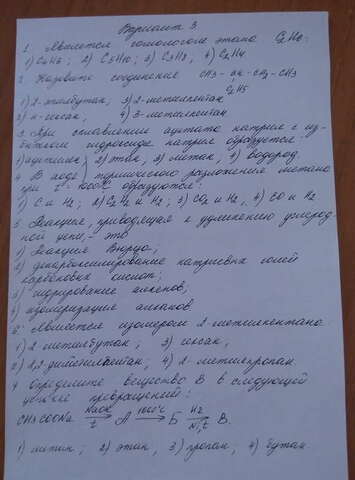 Вариант 3.
1. Является гомологом этана C2H6:
1) C6H6; 2) C5H10; 3) C3H8; 4) C2H4
2. Назовите соединение CH3 - CH - CH2 - CH3
C2H5
1) 2-этилбутан, 3) 2-метилпентан
2) н-гексан, 4) 3-метилпентан
3. При сплавлении ацетата натрия с из-
бытком гидроксида натрия образуется:
1) ацетилен, 2) этан, 3) метан, 4) водород.
4. В ходе термического разложения метана
при t = 1000°C образуются:
1) C и H2; 2) C2H2 и H2; 3) CO2 и H2, 4) CO и H2
5. Реакция, приводящая к удлинению углерод
ной цепи, - это
1) Реакция Вюрца;
2) декарбоксилирование натриевых солей
карбоновых кислот;
3) гидрирование алкенов;
4) изомеризация алканов.
6. Является изомером 2-метилпентана:
1) 2 метилбутан; 3) гексан,
2) 2,2-диметилпентан; 4) 2-метилпропан.
7 Определите вещество В в следующей
цепочке превращений:
NaOH 1000°C H2
CH3COONa → А → Б → В.
t Ni, t
1) метан; 2) этан, 3) пропан, 4) бутан